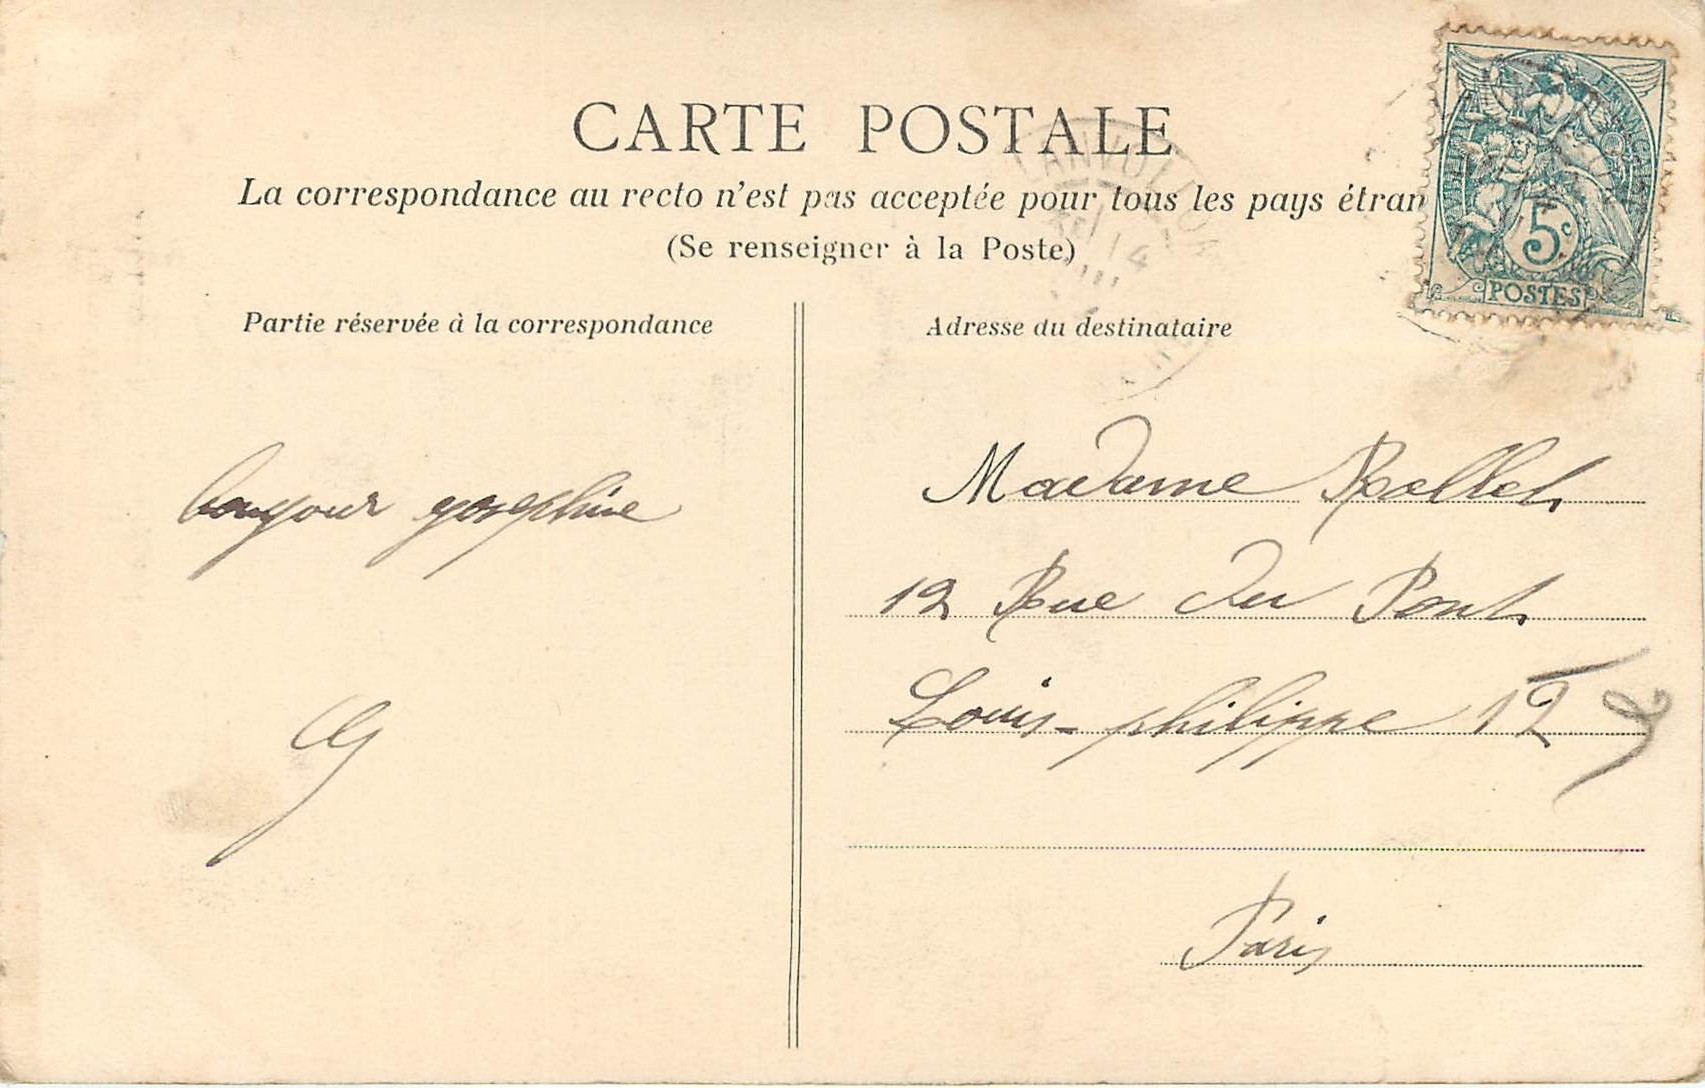 CARTE POSTALE
La correspondance au recto n'est pas acceptée pour tous les pays étran
(Se renseigner à la Poste)
5c
POSTES
Partie réservée à la correspondance
Adresse du destinataire
bonjour josephine
Madame Rollet
12 Rue du Pont
Louis-philippe 12
Paris